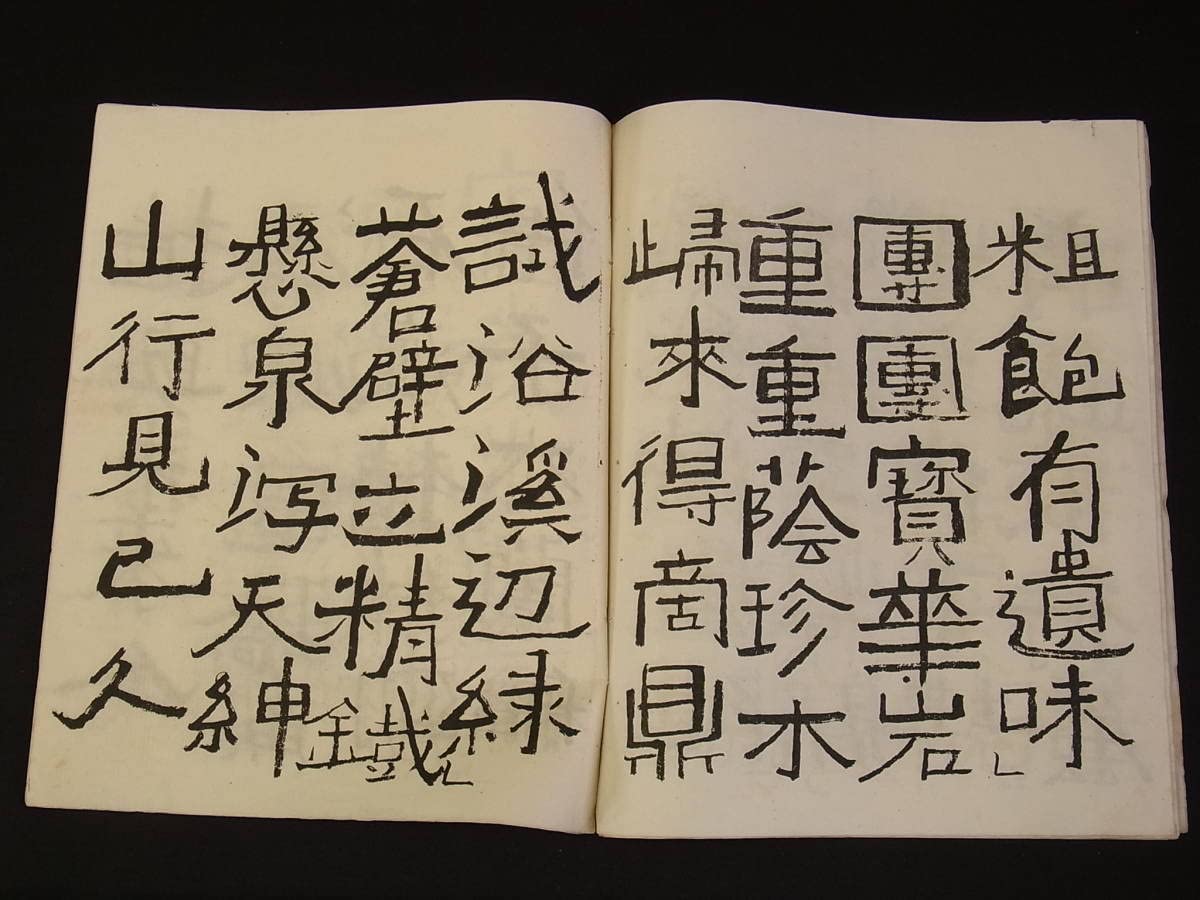 粗飽有遺味」
團團寶華岩
重重蔭珍木
歸來得商鼎
試浴溪辺緑」
蒼壁立精鐡
懸泉泻天紳
山行見已久